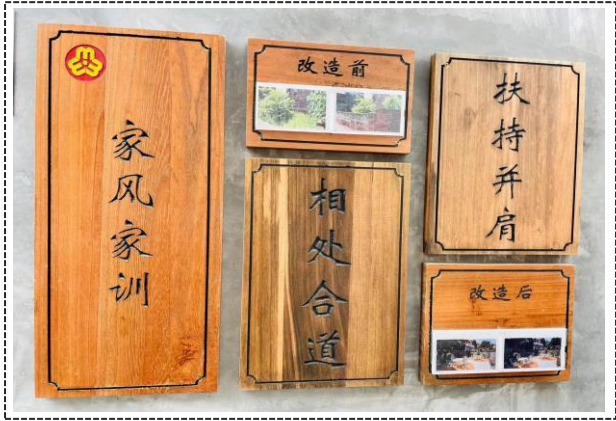 家风家训
改造前
相处合道
扶持并肩
改造后